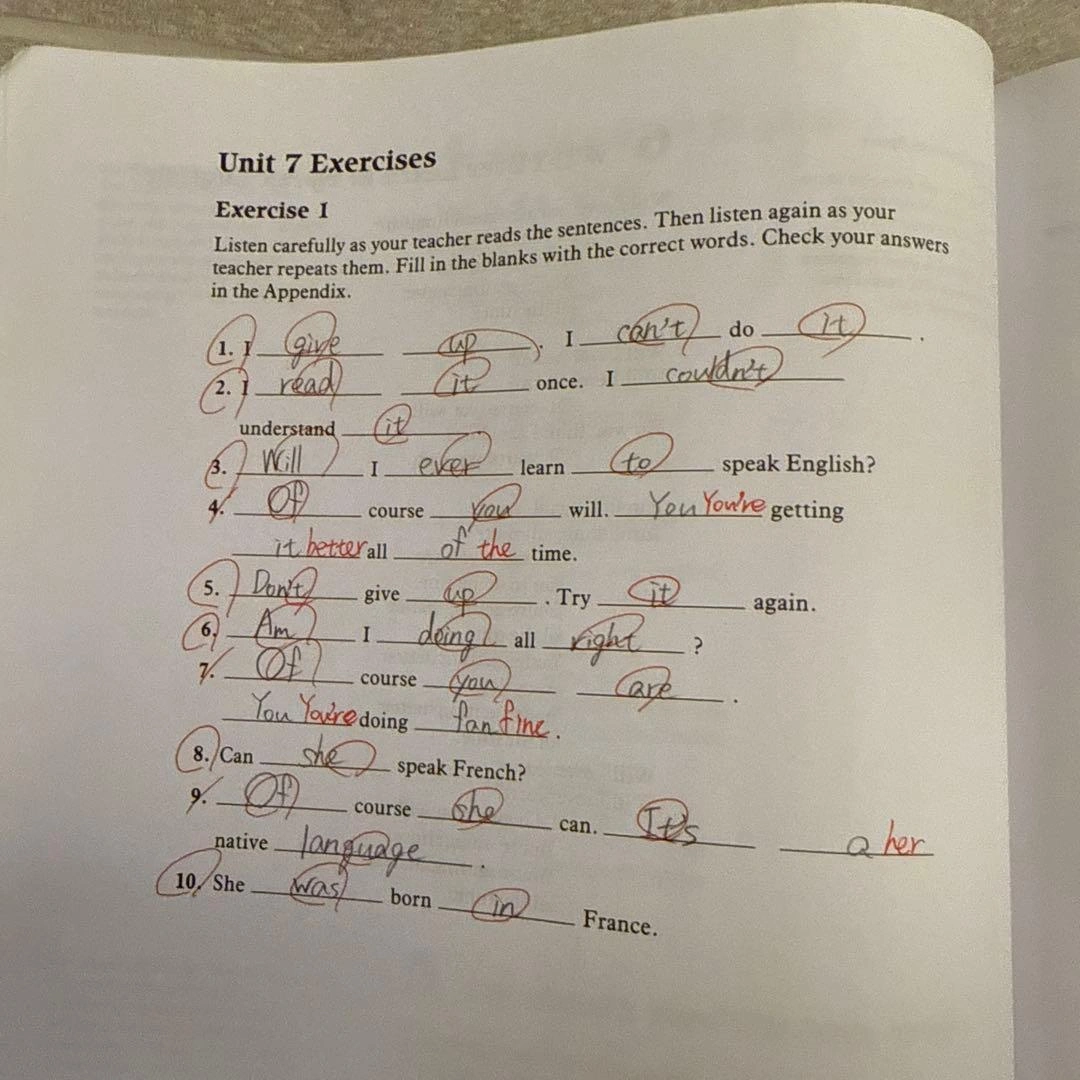 Unit 7 Exercises
Exercise 1
Listen carefully as your teacher reads the sentences. Then listen again as your
teacher repeats them. Fill in the blanks with the correct words. Check your answers
in the Appendix.
1. I give up. I can't do it.
2. I read it once. I couldn't
understand it
3. Will I ever learn to speak English?
4. Of course you will. You You're getting
it better all of the time.
5. Don't give up. Try it again.
6. Am I doing all right?
7. Of course you are.
You You're doing fan fine.
8. Can she speak French?
9. Of course she can. It's a her
native language.
10. She was born in France.